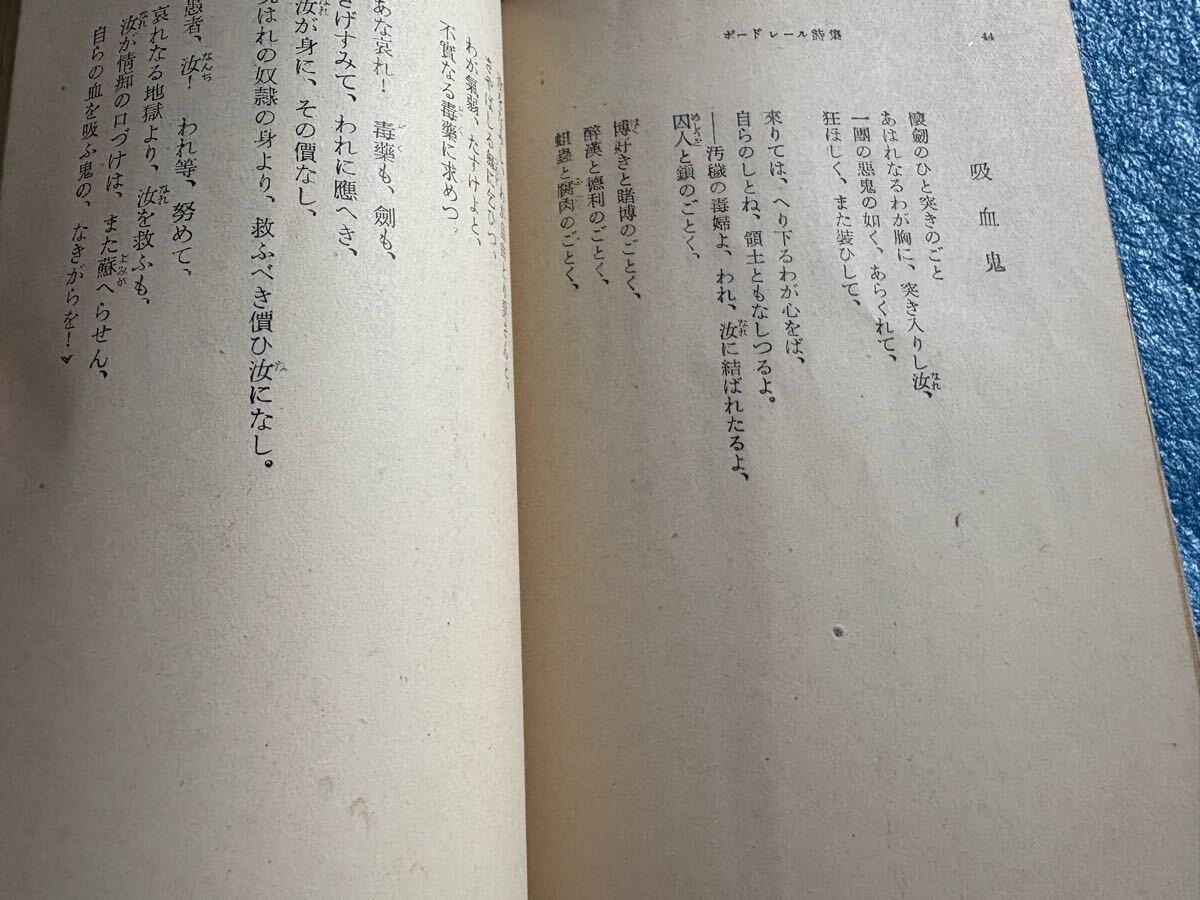 ボードレール詩集
44
吸血鬼
懷劒のひと突きのごと
あはれなるわが胸に、突き入りし汝、
一團の惡鬼の如く、あらくれて、
狂ほしく、また裝ひして、
來りては、へり下るわが心をば、
自らのしとね、領土ともなしつるよ。
──汚穢の毒婦よ、われ、汝に結ばれたるよ、
囚人と鎖のごとく、
博好きと賭博のごとく、
醉漢と德利のごとく、
蛆蟲と腐肉のごとく、
わが氣弱、たすけよと、
不實なる毒藥に求めつ。
あな哀れ! 毒藥も、劍も、
げすみて、われに應へき、
汝が身に、その價なし、
はれの奴隷の身より、救ふべき價ひ汝になし。
愚者、汝! われ等、努めて、
哀れなる地獄より、汝を救ふも、
汝が情痴の口づけは、また蘇へらせん、
自らの血を吸ふ鬼の、なきがらを!